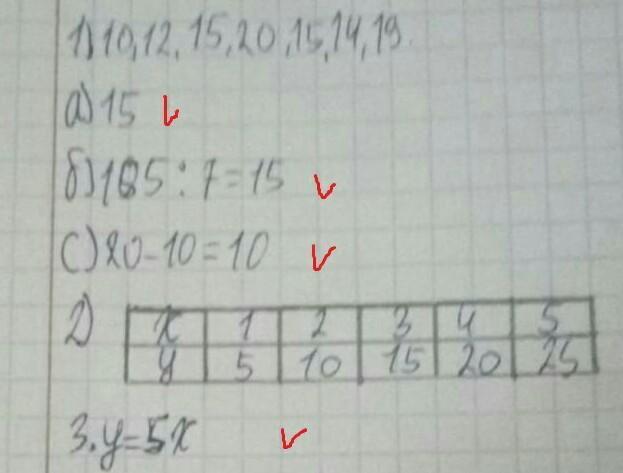 1) 10, 12, 15, 20, 15, 14, 19.
а) 15
б) 105 : 7 = 15
с) 20 - 10 = 10
2) x 1 2 3 4 5
y 5 10 15 20 25
3. y = 5x